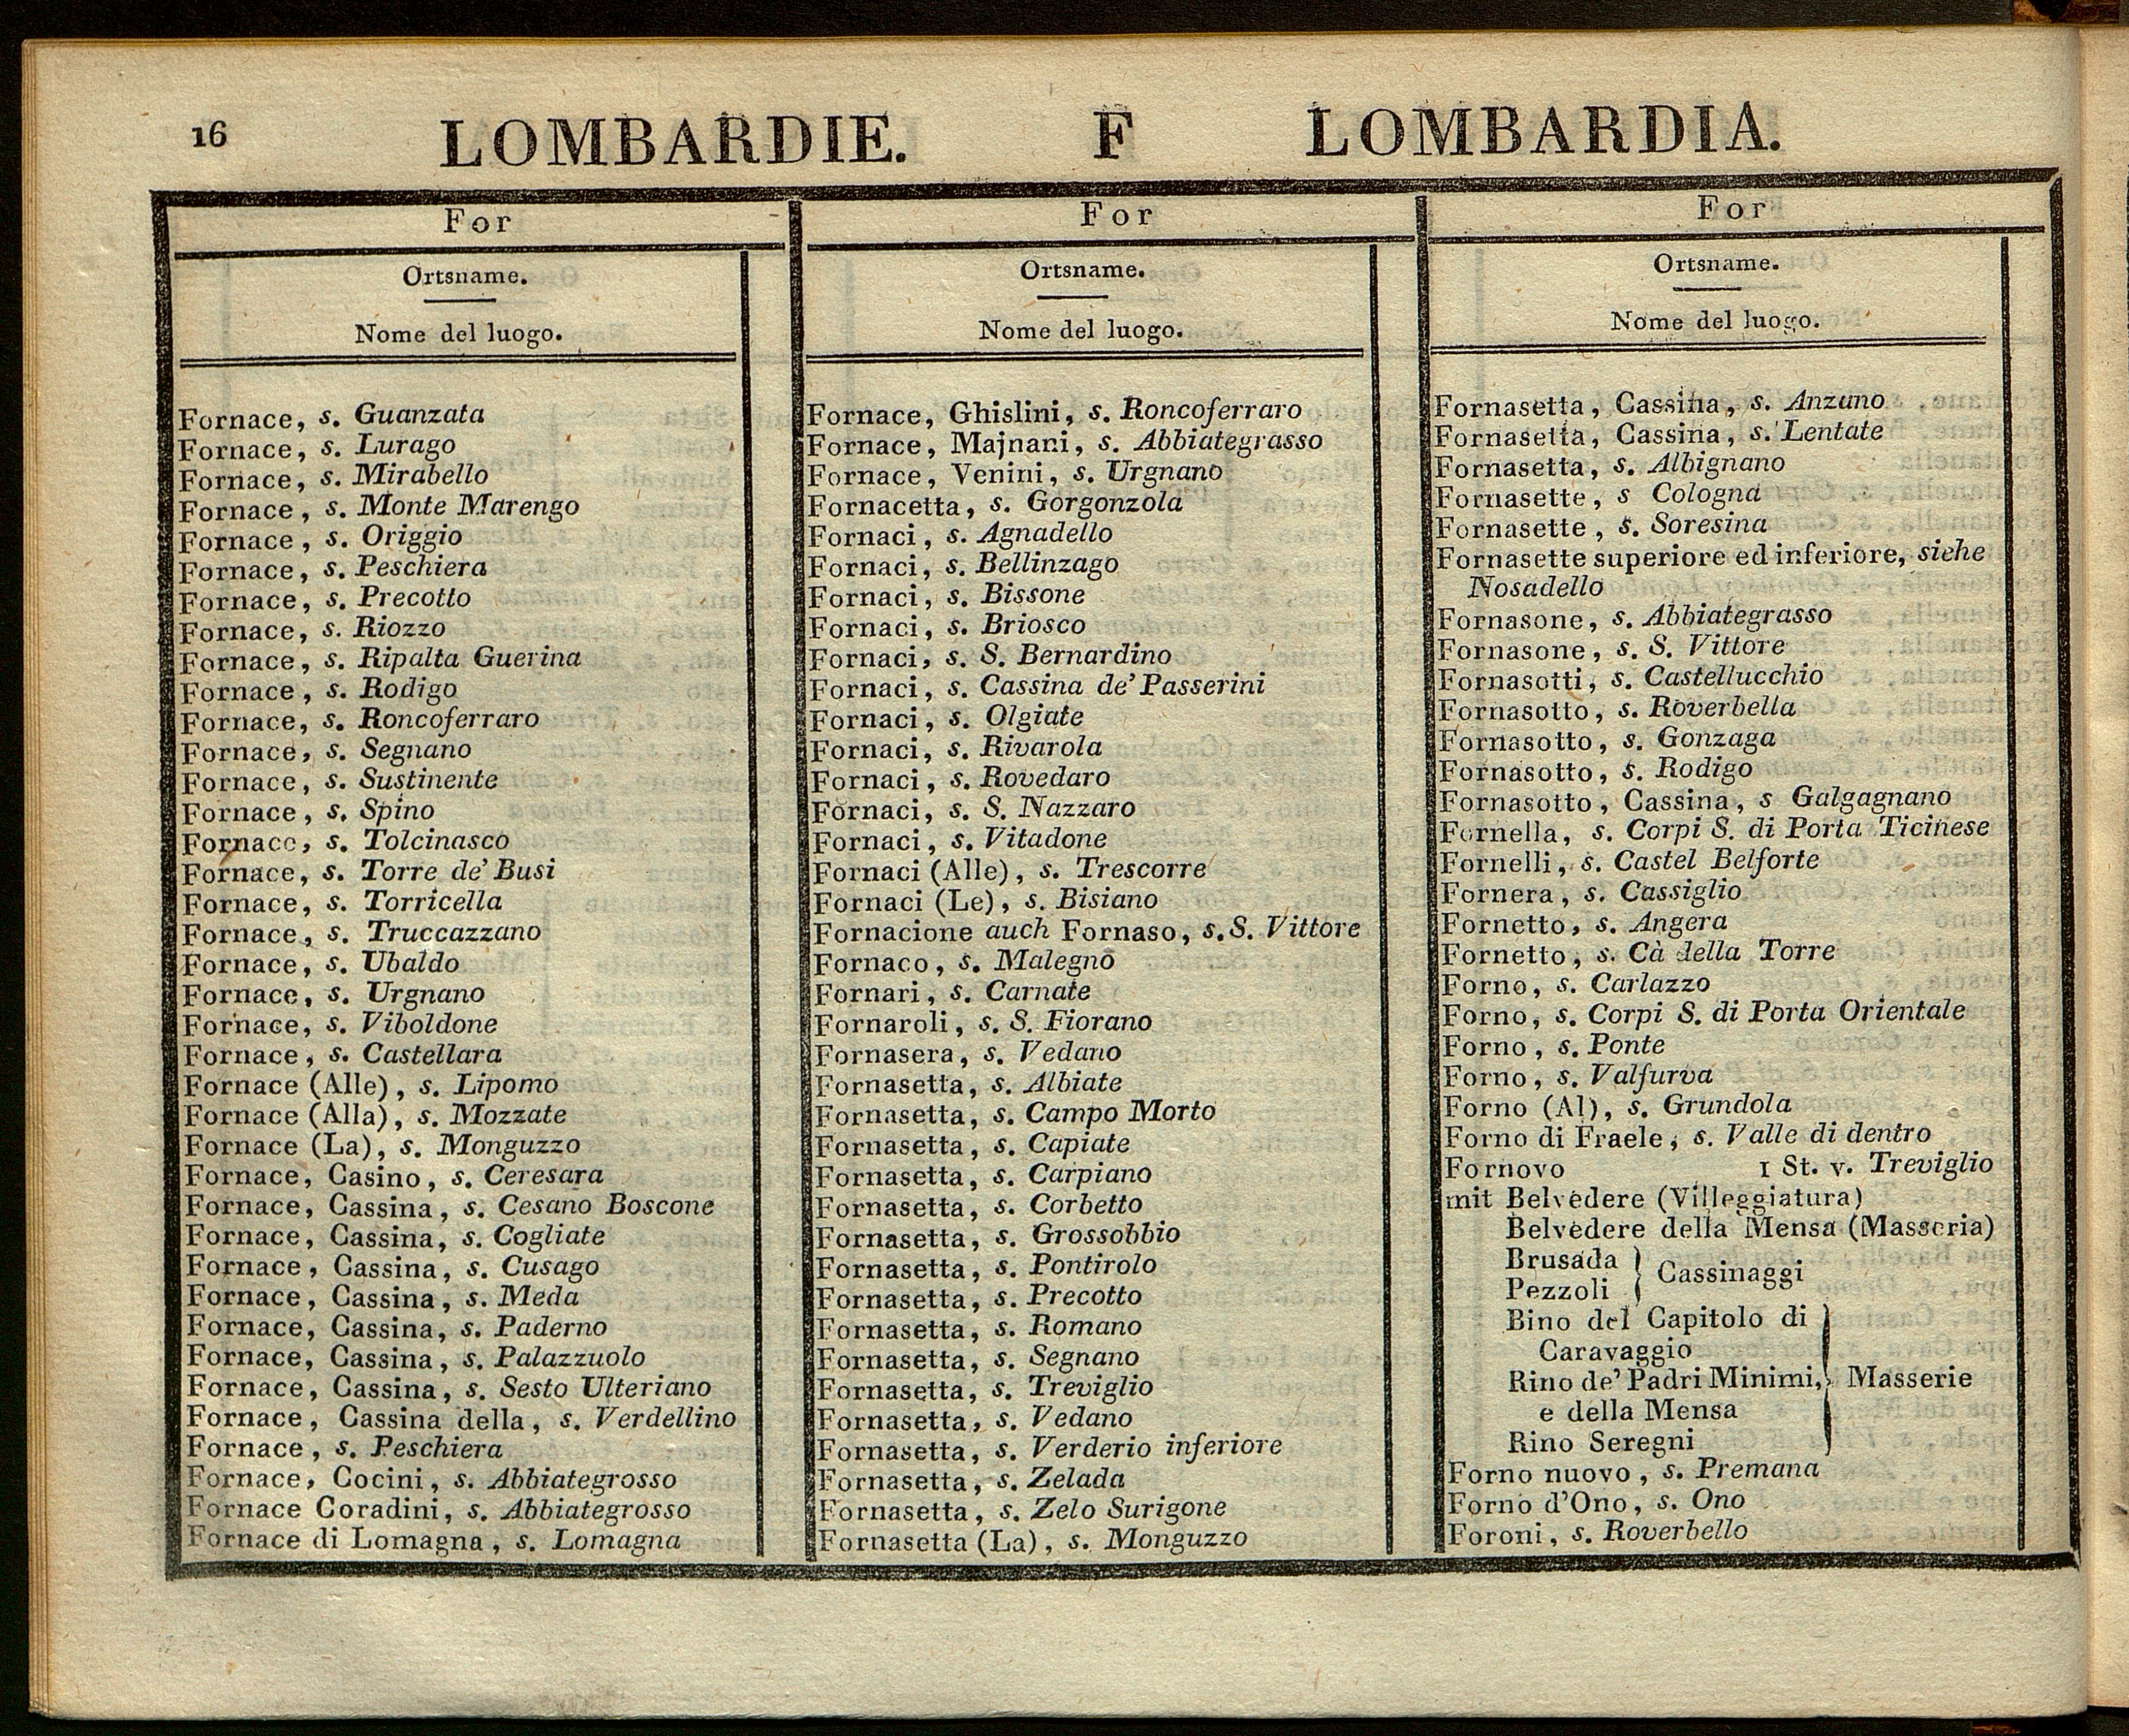 16
LOMBARDIE. F LOMBARDIA.
For
Ortsname.
Nome del luogo.
Fornace, s. Guanzata
Fornace, s. Lurago
Fornace, s. Mirabello
Fornace, s. Monte Marengo
Fornace, s. Origgio
Fornace, s. Peschiera
Fornace, s. Precotto
Fornace, s. Riozzo
Fornace, s. Ripalta Guerina
Fornace, s. Rodigo
Fornace, s. Roncoferraro
Fornace, s. Segnano
Fornace, s. Sustinente
Fornace, s. Spino
Fornace, s. Tolcinasco
Fornace, s. Torre de' Busi
Fornace, s. Torricella
Fornace, s. Truccazzano
Fornace, s. Ubaldo
Fornace, s. Urgnano
Fornace, s. Viboldone
Fornace, s. Castellara
Fornace (Alle), s. Lipomo
Fornace (Alla), s. Mozzate
Fornace (La), s. Monguzzo
Fornace, Casino, s. Ceresara
Fornace, Cassina, s. Cesano Boscone
Fornace, Cassina, s. Cogliate
Fornace, Cassina, s. Cusago
Fornace, Cassina, s. Meda
Fornace, Cassina, s. Paderno
Fornace, Cassina, s. Palazzuolo
Fornace, Cassina, s. Sesto Ulteriano
Fornace, Cassina della, s. Verdellino
Fornace, s. Peschiera
Fornace, Cocini, s. Abbiategrosso
Fornace Coradini, s. Abbiategrosso
Fornace di Lomagna, s. Lomagna
For
Ortsname.
Nome del luogo.
Fornace, Ghislini, s. Roncoferraro
Fornace, Majnani, s. Abbiategrasso
Fornace, Venini, s. Urgnano
Fornacetta, s. Gorgonzola
Fornaci, s. Agnadello
Fornaci, s. Bellinzago
Fornaci, s. Bissone
Fornaci, s. Briosco
Fornaci, s. S. Bernardino
Fornaci, s. Cassina de' Passerini
Fornaci, s. Olgiate
Fornaci, s. Rivarola
Fornaci, s. Rovedaro
Fornaci, s. S. Nazzaro
Fornaci, s. Vitadone
Fornaci (Alle), s. Trescorre
Fornaci (Le), s. Bisiano
Fornacione auch Fornaso, s. S. Vittore
Fornaco, s. Malegno
Fornari, s. Carnate
Fornaroli, s. S. Fiorano
Fornasera, s. Vedano
Fornasetta, s. Albiate
Fornasetta, s. Campo Morto
Fornasetta, s. Capiate
Fornasetta, s. Carpiano
Fornasetta, s. Corbetto
Fornasetta, s. Grossobbio
Fornasetta, s. Pontirolo
Fornasetta, s. Precotto
Fornasetta, s. Romano
Fornasetta, s. Segnano
Fornasetta, s. Treviglio
Fornasetta, s. Vedano
Fornasetta, s. Verderio inferiore
Fornasetta, s. Zelada
Fornasetta, s. Zelo Surigone
Fornasetta (La), s. Monguzzo
For
Ortsname.
Nome del luogo.
Fornasetta, Cassina, s. Anzano
Fornasetta, Cassina, s. Lentate
Fornasetta, s. Albignano
Fornasette, s Cologna
Fornasette, s. Soresina
Fornasette superiore ed inferiore, siehe
Nosadello
Fornasone, s. Abbiategrasso
Fornasone, s. S. Vittore
Fornasotti, s. Castellucchio
Fornasotto, s. Roverbella
Fornasotto, s. Gonzaga
Fornasotto, s. Rodigo
Fornasotto, Cassina, s Galgagnano
Fornella, s. Corpi S. di Porta Ticinese
Fornelli, s. Castel Belforte
Fornera, s. Cassiglio
Fornetto, s. Angera
Fornetto, s. Cà della Torre
Forno, s. Carlazzo
Forno, s. Corpi S. di Porta Orientale
Forno, s. Ponte
Forno, s. Valfurva
Forno (Al), s. Grundola
Forno di Fraele, s. Valle di dentro
Fornovo 1 St. v. Treviglio
mit Belvedere (Villeggiatura)
Belvedere della Mensa (Masseria)
Brusada
Pezzoli } Cassinaggi
Bino del Capitolo di
Caravaggio
Rino de' Padri Minimi, } Masserie
e della Mensa
Rino Seregni
Forno nuovo, s. Premana
Forno d'Ono, s. Ono
Foroni, s. Roverbello